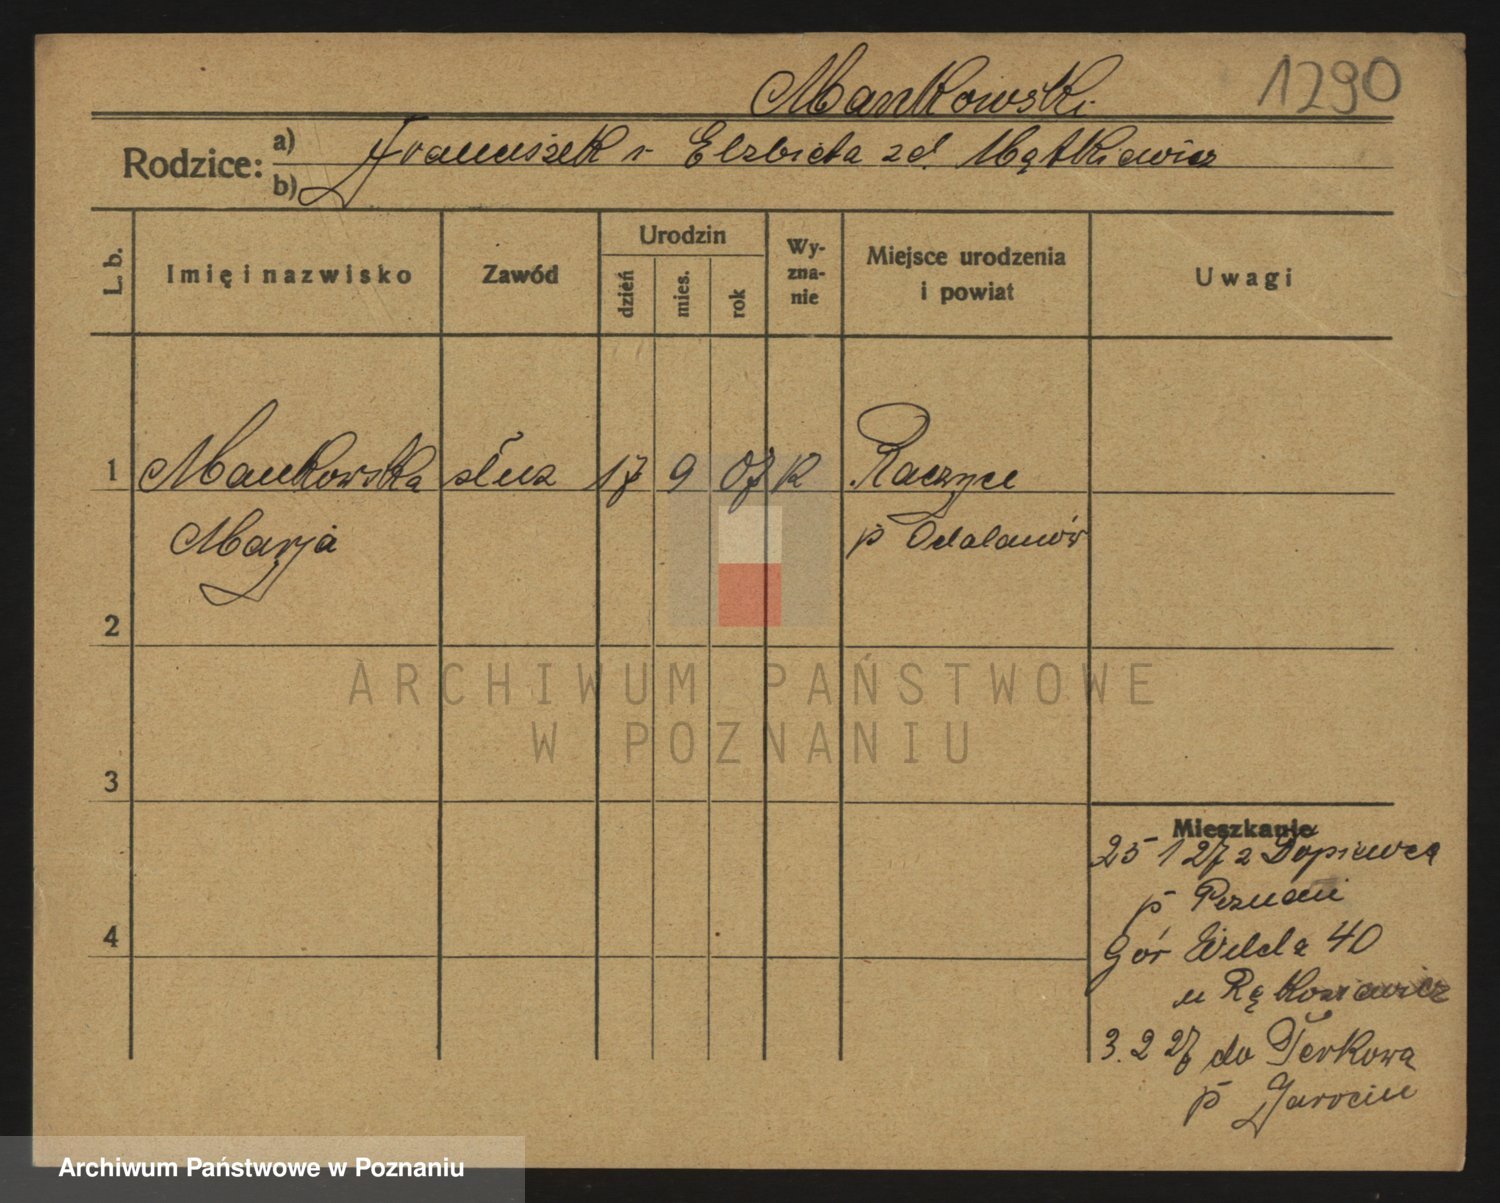 Mankowski
1290
Rodzice:
a) Franciszek i Elzbieta zd. Mątkiewicz
b)
L. b.
Imię i nazwisko
Zawód
Urodzin
dzień
mies.
rok
Wy-
zna-
nie
Miejsce urodzenia
i powiat
Uwagi
1 Mankowska służ 17 9 07 k Raczyce
Marja p Odolanów
2
3
4
Mieszkanie
25 1 27 z Dopiewca
p Poznań
Gór Wilda 40
u
3. 2 27 do Żerkowa
p Jarocin
ARCHIWUM PAŃSTWOWE
W POZNANIU
Archiwum Państwowe w Poznaniu